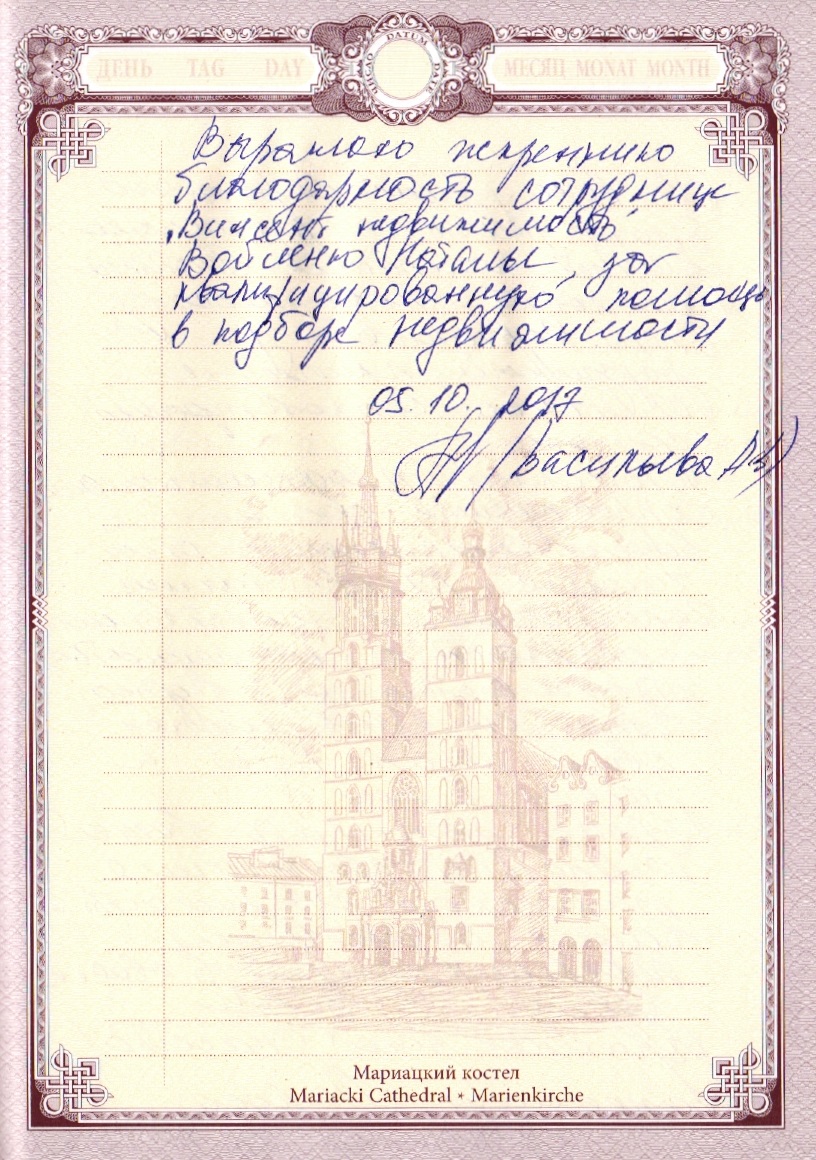 ДЕНЬ TAG DAY DATUM МЕСЯЦ MONAT MONTH
Выражаю искреннюю
благодарность сотруднице
"Винсент недвижимость"
Войленко Натальи, за
квалифицированную помощь
в подборе недвижимости
05.10.2017
(Васильева А.В.)
Мариацкий костел
Mariacki Cathedral * Marienkirche